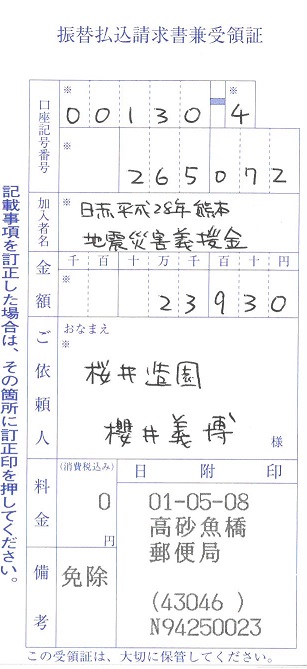 振替払込請求書兼受領証
口座記号番号
※
00130-4
※
265072
加入者名
※
日赤平成28年熊本
地震災害義援金
金額
千 百 十 万 千 百 十 円
※
23930
ご依頼人
おなまえ
※
桜井造園
櫻井義博 様
料金
(消費税込み)
0
円
備考
免除
日附印
01-05-08
高砂魚橋
郵便局
(43046 )
N94250023
この受領証は、大切に保管してください。
記載事項を訂正した場合は、その箇所に訂正印を押してください。